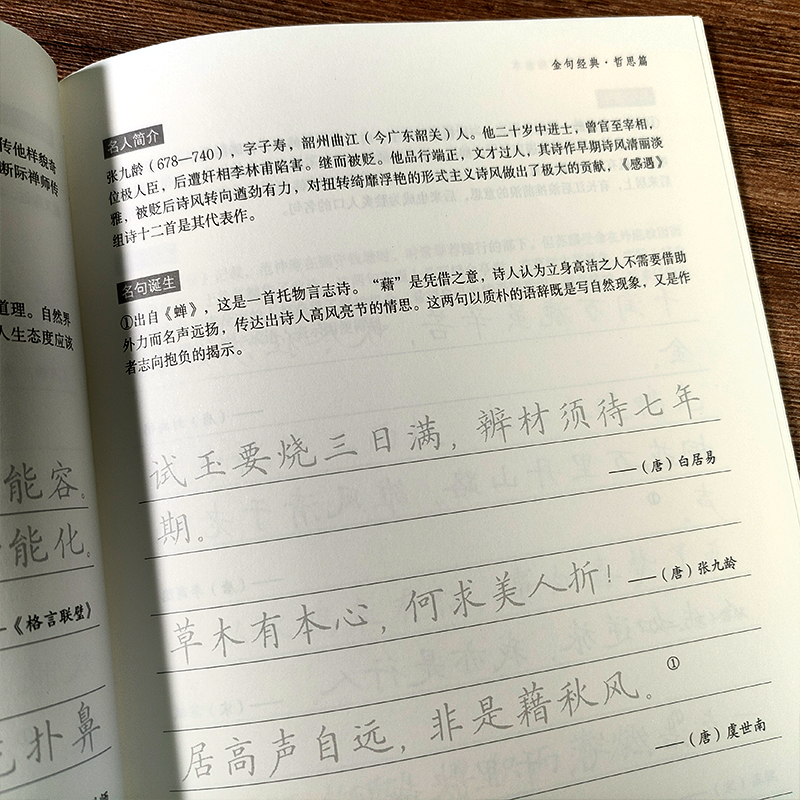 传他样貌奇
断际禅师传
道理。自然界
人生态度应该
能容。
能化。
《格言联璧》
扑鼻
金句经典·哲思篇
名人简介
张九龄（678—740），字子寿，韶州曲江（今广东韶关）人。他二十岁中进士，曾官至宰相，
位极人臣，后遭奸相李林甫陷害。继而被贬。他品行端正，文才过人，其诗作早期诗风清丽淡
雅，被贬后诗风转向遒劲有力，对扭转绮靡浮艳的形式主义诗风做出了极大的贡献，《感遇》
组诗十二首是其代表作。
名句诞生
①出自《蝉》，这是一首托物言志诗。“藉”是凭借之意，诗人认为立身高洁之人不需要借助
外力而名声远扬，传达出诗人高风亮节的情思。这两句以质朴的语辞既是写自然现象，又是作
者志向抱负的揭示。
试玉要烧三日满，辨材须待七年
——（唐）白居易
期。
草木有本心，何求美人折！——（唐）张九龄
居高声自远，非是藉秋风。①
——（唐）虞世南